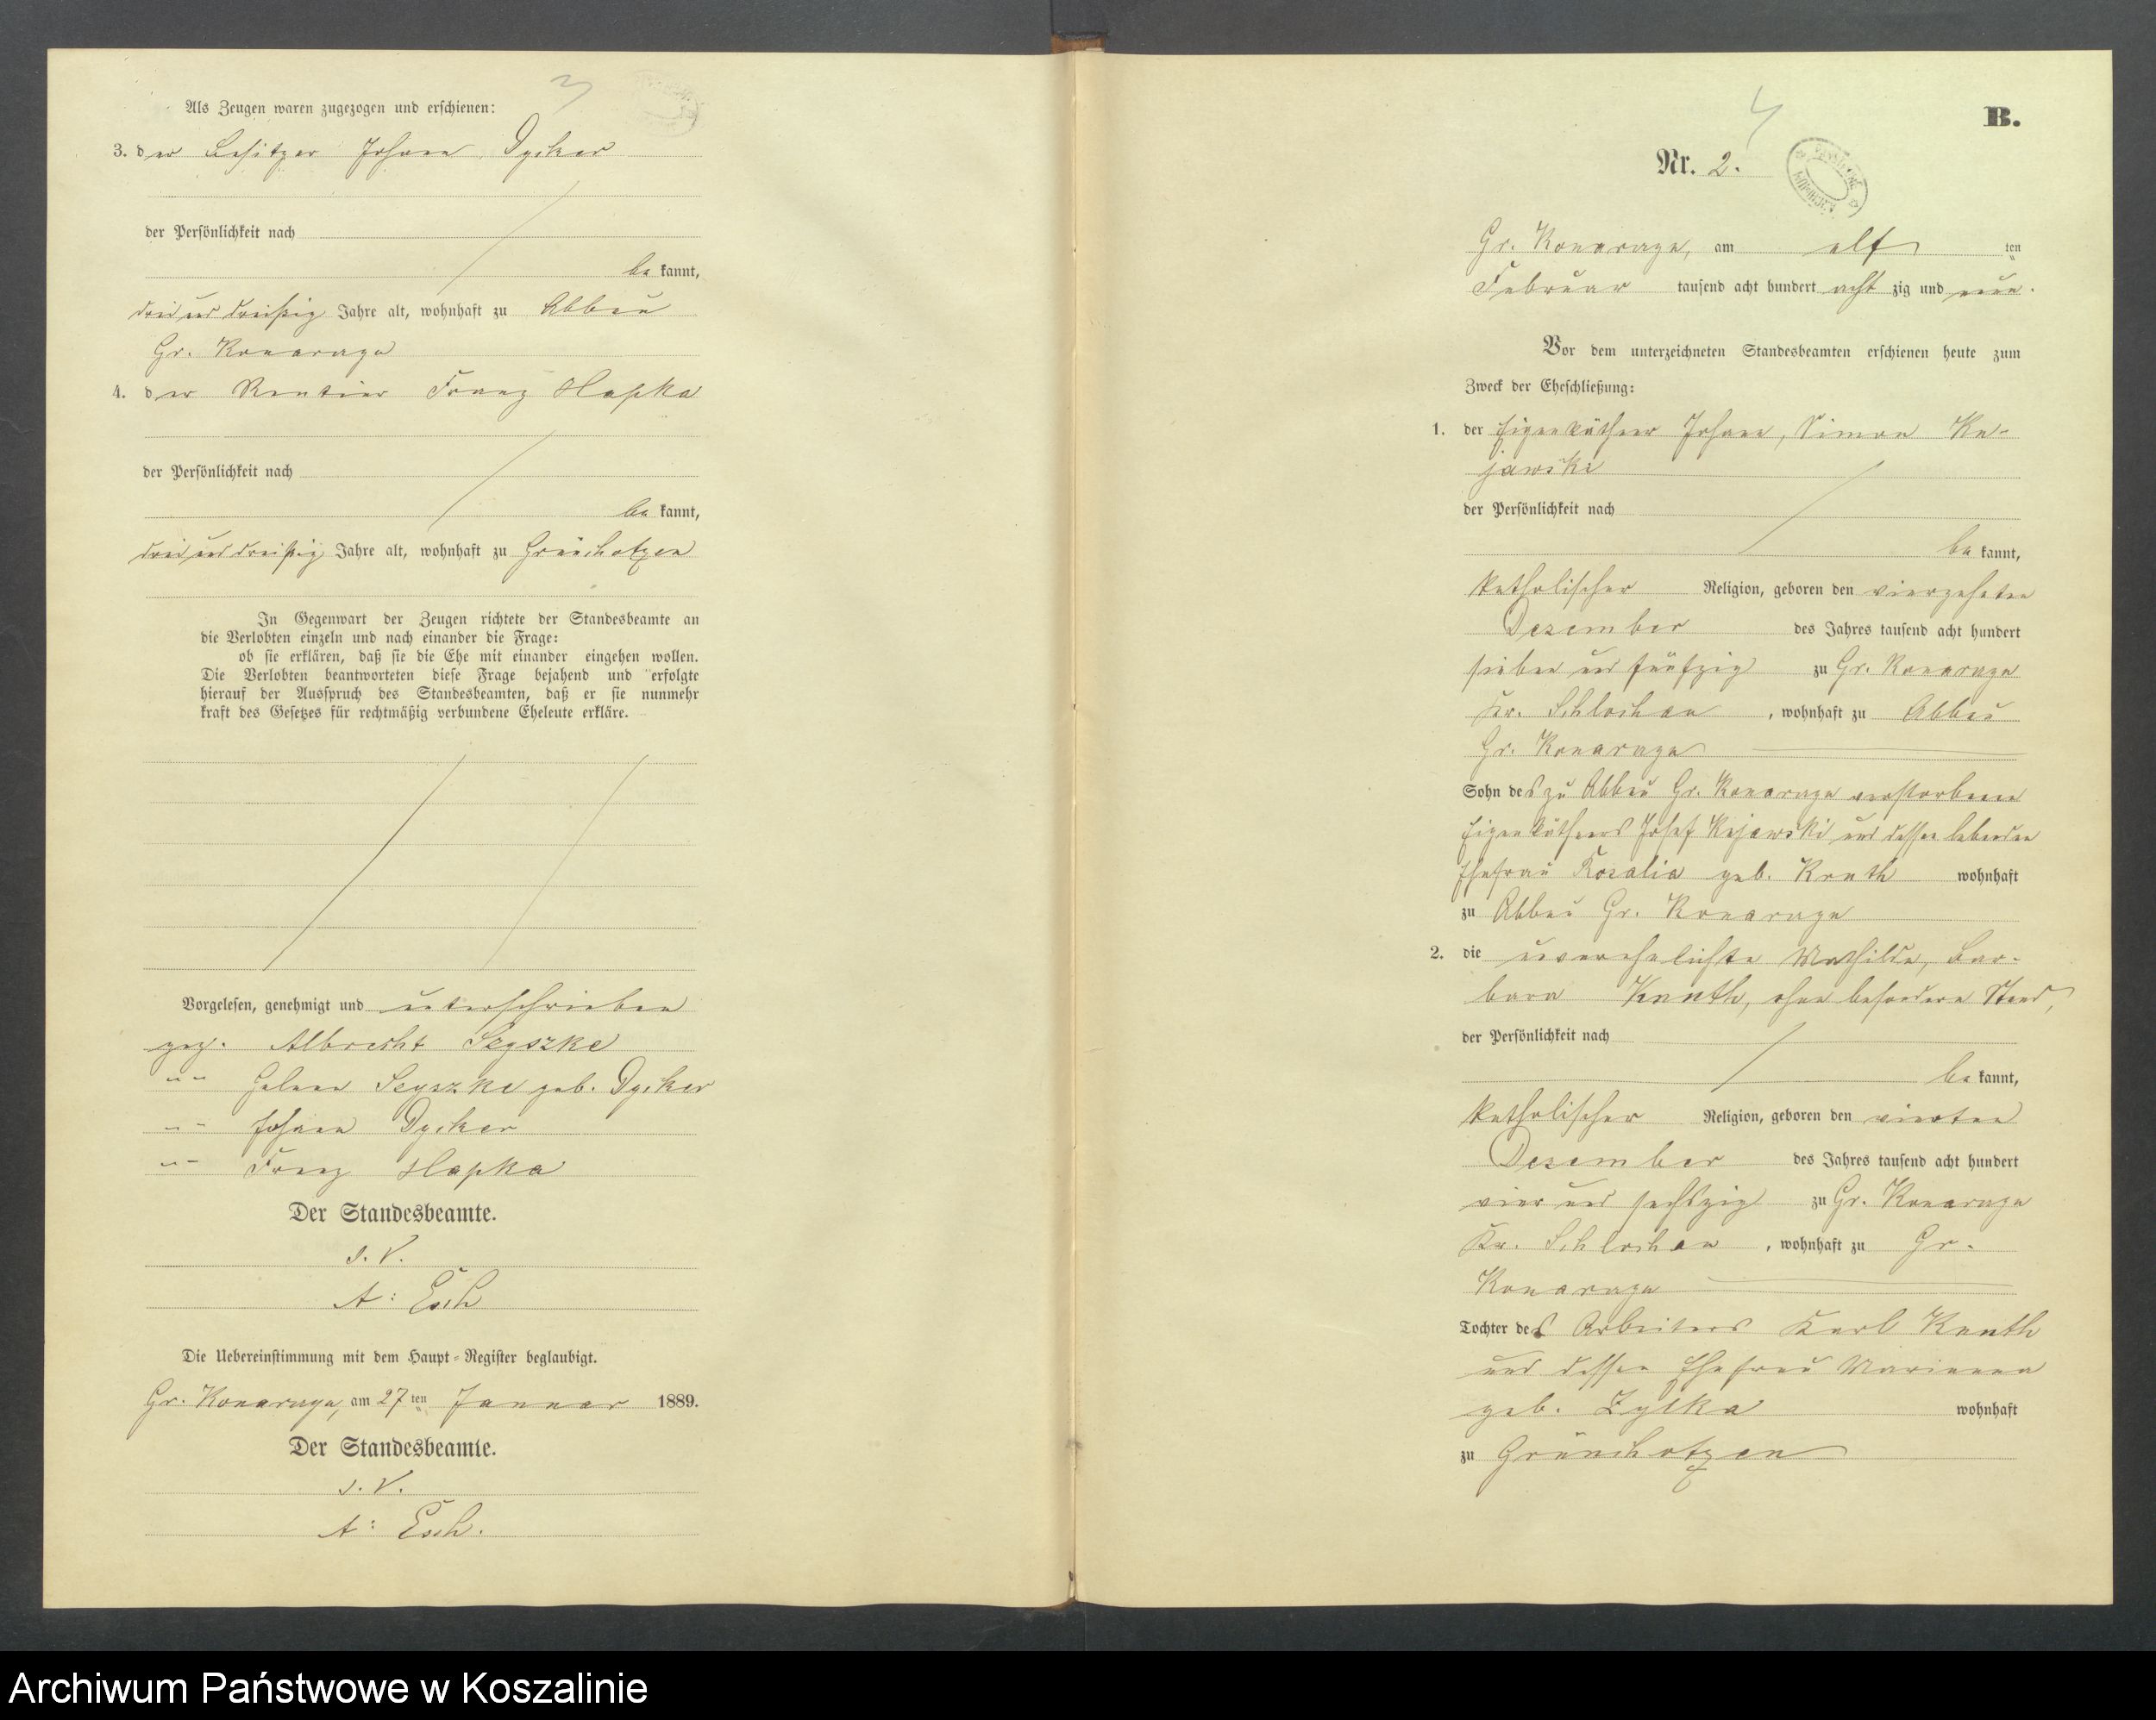 Als Zeugen waren zugezogen und erschienen:
3. der Besitzer Johann Dycker
der Persönlichkeit nach
be kannt,
drei und dreißig Jahre alt, wohnhaft zu Abbau
Gr. Konarzyn
4. der Rentier Franz Hapka
der Persönlichkeit nach
be kannt,
drei und dreißig Jahre alt, wohnhaft zu Grünchotzen
In Gegenwart der Zeugen richtete der Standesbeamte an
die Verlobten einzeln und nach einander die Frage:
ob sie erklären, daß sie die Ehe mit einander eingehen wollen.
Die Verlobten beantworteten diese Frage bejahend und erfolgte
hierauf der Ausspruch des Standesbeamten, daß er sie nunmehr
kraft des Gesetzes für rechtmäßig verbundene Eheleute erkläre.
Vorgelesen, genehmigt und unterschrieben
gez. Albrecht
Helene geb. Dycker
Johann Dycker
Franz Hapka
Der Standesbeamte.
A: Esch
Die Uebereinstimmung mit dem Haupt-Register beglaubigt.
Gr. Konarzyn, am 27 ten Januar 1889.
Der Standesbeamte.
A: Esch.
B.
Nr. 2.
Gr. Konarzyn, am elf ten
Februar tausend acht hundert acht zig und neun.
Vor dem unterzeichneten Standesbeamten erschienen heute zum
Zweck der Eheschließung:
1. der Eigenkäthner Johann, Simon Ku-
jawski
der Persönlichkeit nach
be kannt,
katholischer Religion, geboren den vierzehnten
Dezember des Jahres tausend acht hundert
sieben und fünfzig zu Gr. Konarzyn
Kr. Schlochau, wohnhaft zu Abbau
Gr. Konarzyn
Sohn des zu Abbau Gr. Konarzyn verstorbenen
Eigenkäthners Josef Kujawski und dessen lebenden
Ehefrau Rosalia geb. wohnhaft
zu Abbau Gr. Konarzyn
2. die unverehelichte Mathilde, Bar-
bara Knuth, ohne besondern Stand,
der Persönlichkeit nach
be kannt,
katholischer Religion, geboren den vierten
Dezember des Jahres tausend acht hundert
vier und sechszig zu Gr. Konarzyn
Kr. Schlochau, wohnhaft zu Gr.
Konarzyn
Tochter des Arbeiters Karl Knuth
und dessen Ehefrau Marianna
geb. Zylka wohnhaft
zu Grünchotzen
Archiwum Państwowe w Koszalinie